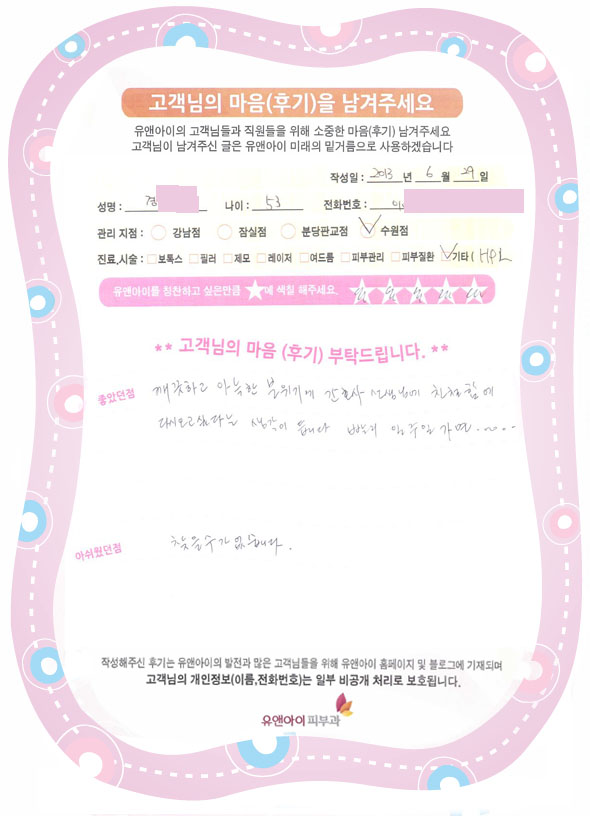 고객님의 마음(후기)을 남겨주세요
유앤아이의 고객님들과 직원들을 위해 소중한 마음(후기) 남겨주세요
고객님이 남겨주신 글은 유앤아이 미래의 밑거름으로 사용하겠습니다
작성일 : 2013 년 6 월 29 일
성명 : 경 나이 : 53 전화번호 :
관리 지점 : 강남점 잠실점 분당판교점 수원점
진료,시술 : 보톡스 필러 제모 레이저 여드름 피부관리 피부질환 기타( HPL
유앤아이를 칭찬하고 싶은만큼 ★에 색칠 해주세요.
** 고객님의 마음 (후기) 부탁드립니다. **
좋았던점 깨끗하고 아늑한 분위기에 간호사 선생님에 친절함에
다시오고싶다는 생각이 듭니다 빨리 일주일가면.
아쉬웠던점 찾을수가 없습니다.
작성해주신 후기는 유앤아이의 발전과 많은 고객님들을 위해 유앤아이 홈페이지 및 블로그에 기재되며
고객님의 개인정보(이름,전화번호)는 일부 비공개 처리로 보호됩니다.
유앤아이피부과